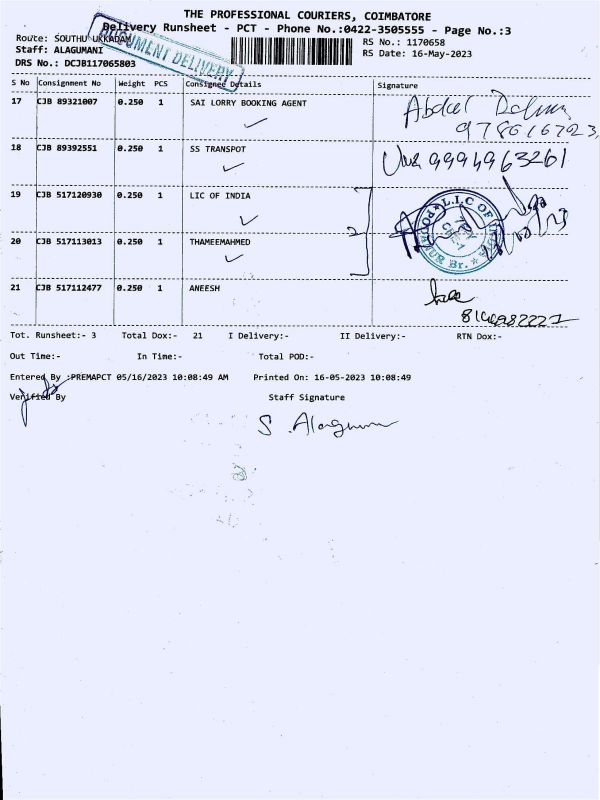 THE PROFESSIONAL COURIERS, COIMBATORE
Delivery Runsheet - PCT - Phone No.:0422-3505555 - Page No.:3
Route: SOUTHU UKKADAM
RS No.: 1170658
Staff: ALAGUMANI
RS Date: 16-May-2023
DRS No.: DCJB117065803
DOCUMENT DELIVERY
S No Consignment No Weight PCS Consignee Details Signature
17 CJB 89321007 0.250 1 SAI LORRY BOOKING AGENT
Abdul
18 CJB 89392551 0.250 1 SS TRANSPOT
9994963261
19 CJB 517120930 0.250 1 LIC OF INDIA
2
L.I.C OF
Br.
20 CJB 517113013 0.250 1 THAMEEMAHMED
21 CJB 517112477 0.250 1 ANEESH
Tot. Runsheet:- 3 Total Dox:- 21 I Delivery:- II Delivery:- RTN Dox:-
Out Time:- In Time:- Total POD:-
Entered By :PREMAPCT 05/16/2023 10:08:49 AM Printed On: 16-05-2023 10:08:49
Verified By Staff Signature